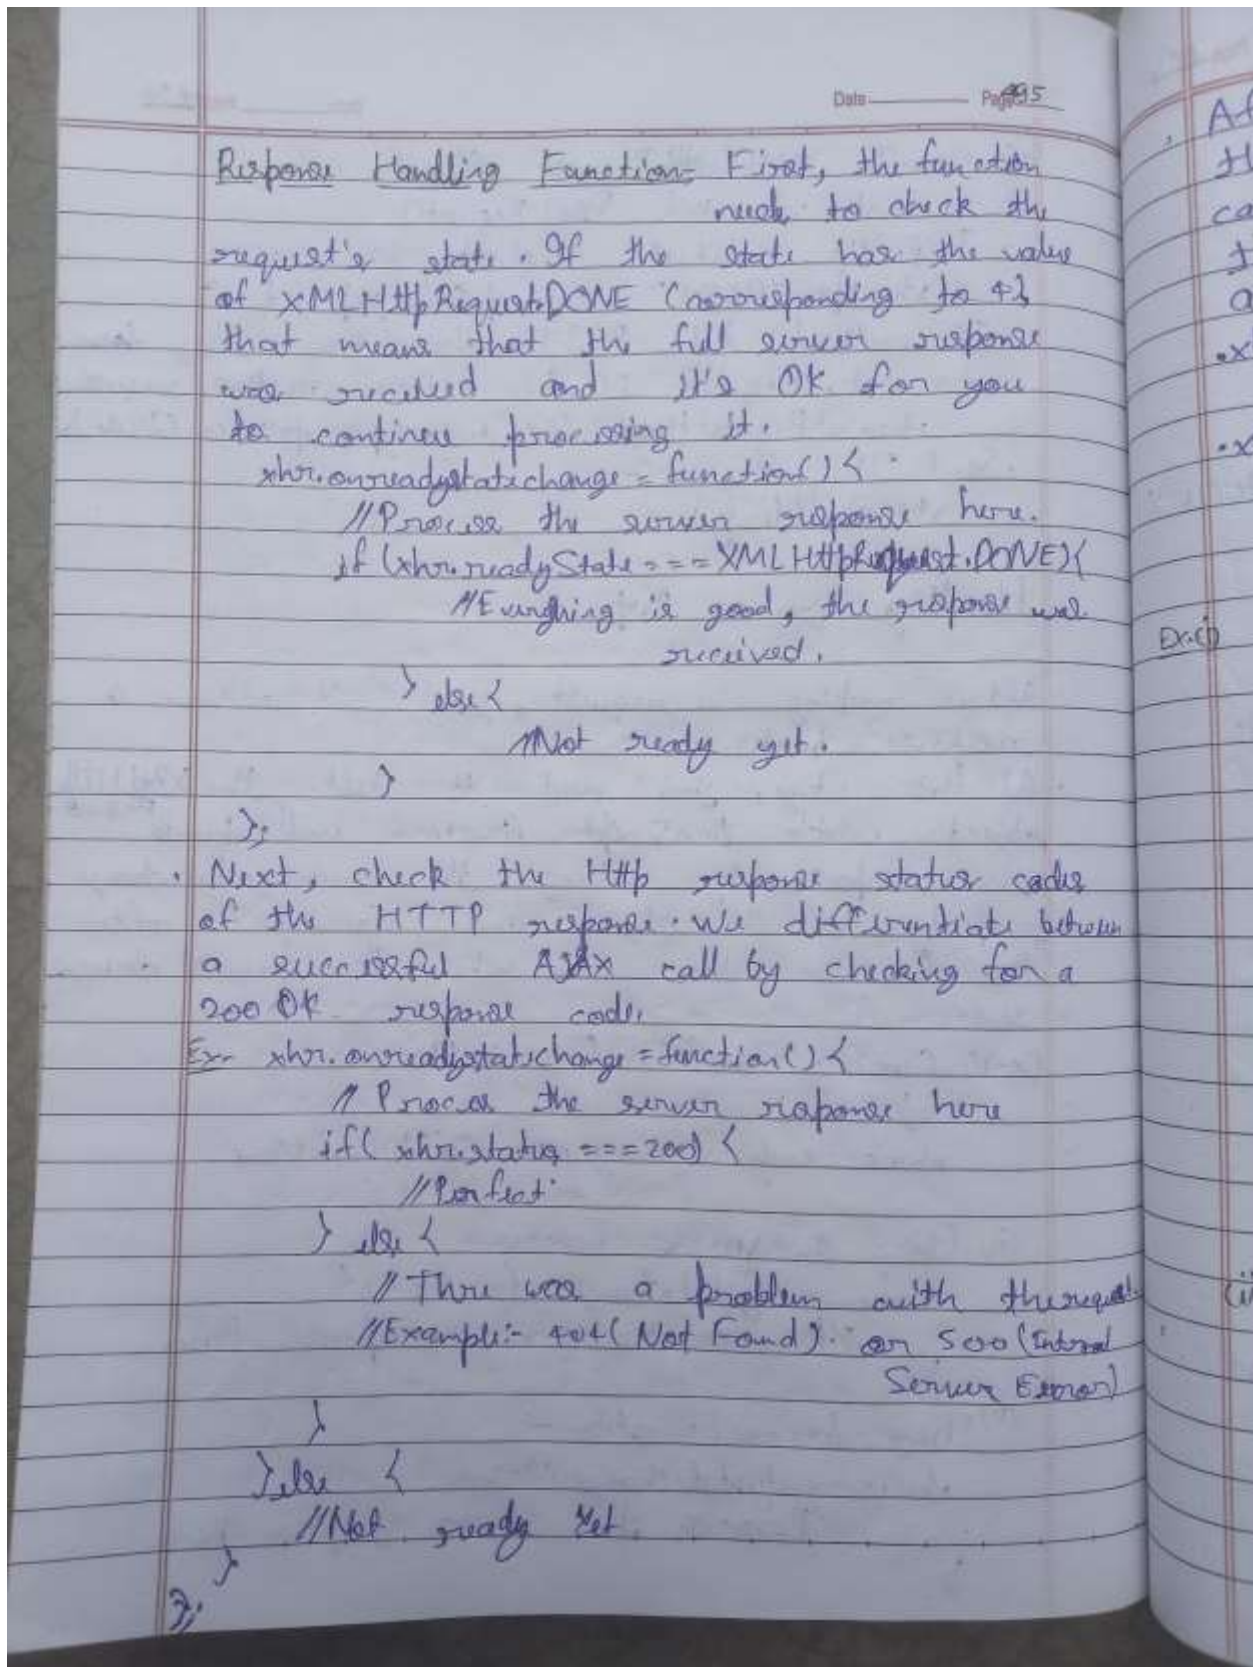 Date Page 95
Response Handling Function:- First, the function
needs to check the
request's state. If the state has the value
of XMLHttpRequest.DONE (corresponding to 4),
that means that the full server response
was received and it's OK for you
to continue processing it.
xhr.onreadystatechange = function() {
//Process the server response here.
if (xhr.readyState === XMLHttpRequest.DONE) {
//Everything is good, the response was
received.
} else {
//Not ready yet.
}
};
. Next, check the Http response status codes
of the HTTP response. We differentiate between
a successful AJAX call by checking for a
200 OK response code.
Ex- xhr.onreadystatechange = function() {
// Process the server response here
if( xhr.status === 200) {
//Perfect
} else {
// Thre was a problem with the request.
//Example:- 404( Not Found). or 500 (Internal
Server Error)
}
} else {
//Not ready Yet
}
};
Af
th
ca
t
a
.x
.x
Ex:(i)
(ii